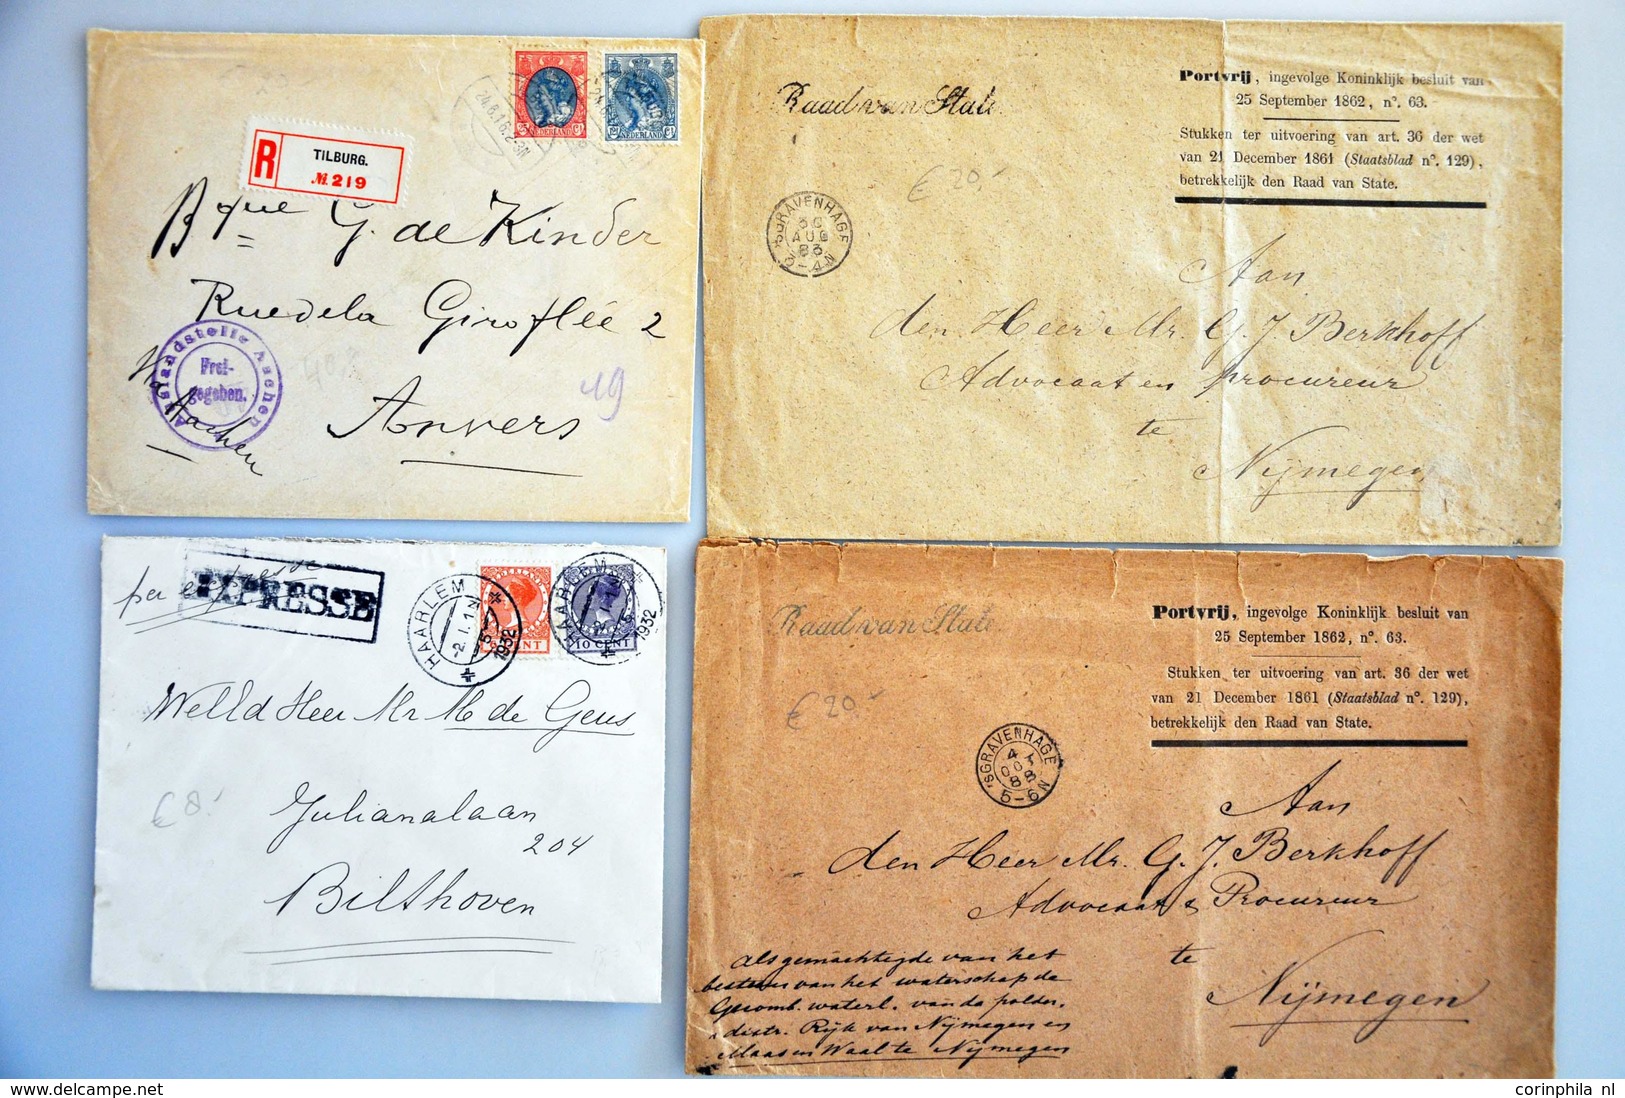 R
TILBURG.
№.219
24.6.16.
NEDERLAND
NEDERLAND
Bque G. de Kinder
Rue de la Giroflée 2
Anvers
via Aachen
Auslandstelle Aachen
Frei-
gegeben.
19
Raad van State
Portvrij, ingevolge Koninklijk besluit van
25 September 1862, n°. 63.
Stukken ter uitvoering van art. 36 der wet
van 21 December 1861 (Staatsblad n°. 129),
betrekkelijk den Raad van State.
€ 20.-
'SGRAVENHAGE
30
AUG
83
3-4N
Aan
den Heer Mr. G. J. Berkhoff
Advocaat en procureur
te
Nijmegen
per expresse
EXPRESSE
HAARLEM
2.I.1N
5
1932
HAARLEM
1932
CENT
10 CENT
WelEd Heer Mr M de Geus
€ 8.-
Julianalaan
204
Bilthoven
Raad van State
Portvrij, ingevolge Koninklijk besluit van
25 September 1862, n°. 63.
Stukken ter uitvoering van art. 36 der wet
van 21 December 1861 (Staatsblad n°. 129),
betrekkelijk den Raad van State.
€ 20.-
'SGRAVENHAGE
4
OCT
88
5-6N
Aan
den Heer Mr. G. J. Berkhoff
Advocaat & Procureur
te
Nijmegen
als gemachtigde van het
bestuur van het waterschap de
Gecomb. waterl. van de polder.
distr. Rijk van Nijmegen en
Maas en Waal te Nijmegen
www.delcampe.net
corinphila nl